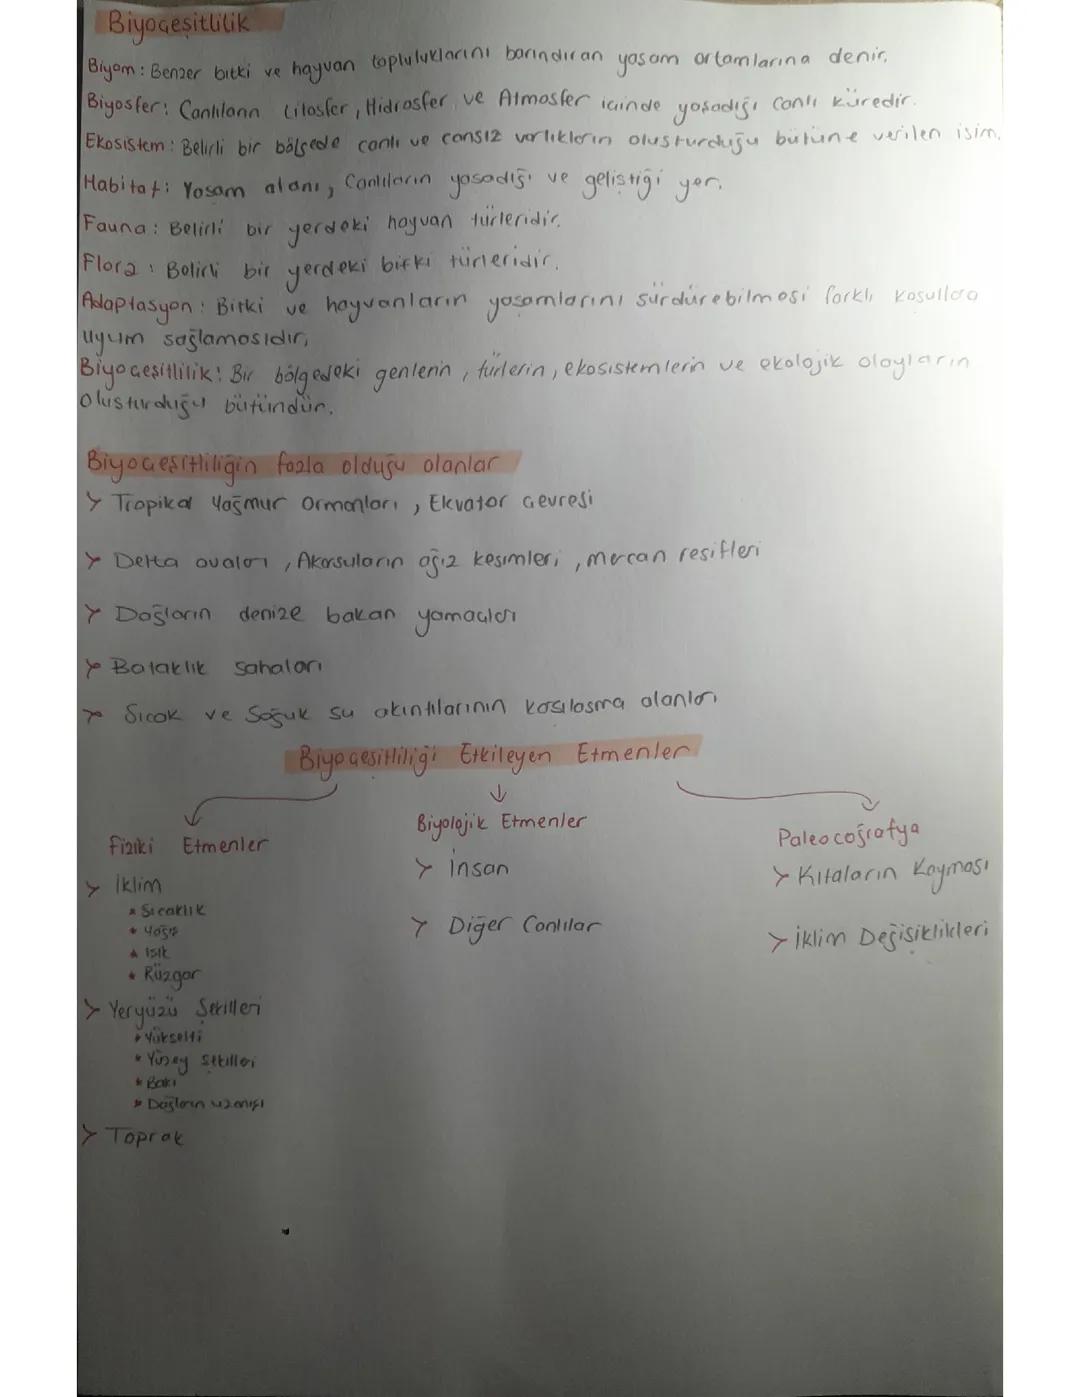 Biyoçeşitlilik
Biyom: Benzer bitki ve hayvan topluluklarını barındıran yaşam ortamlarına denir.
Biyosfer: Canlıların Litosfer, Hidrosfer ve Atmosfer içinde yaşadığı canlı küredir.
Ekosistem: Belirli bir bölgede canlı ve cansız varlıkların oluşturduğu bütüne verilen isim.
Habitat: Yaşam alanı, Canlıların yaşadığı ve geliştiği yer.
Fauna: Belirli bir yerdeki hayvan türleridir.
Flora: Belirli bir yerdeki bitki türleridir.
Adaptasyon: Bitki ve hayvanların yaşamlarını sürdürebilmesi farklı koşullara
uyum sağlamasıdır.
Biyoçeşitlilik: Bir bölgedeki genlerin, türlerin, ekosistemlerin ve ekolojik olayların
oluşturduğu bütündür.
Biyoçeşitliliğin fazla olduğu alanlar
> Tropikal Yağmur Ormanları, Ekvator Çevresi
> Delta ovaları, Akarsuların ağız kesimleri, mercan resifleri
> Dağların denize bakan yamaçları
> Balaklık sahaları
> Sıcak ve Soğuk su akıntılarının karşılaşma alanları
Biyoçeşitliliği Etkileyen Etmenler
Fiziki Etmenler
> İklim
* Sıcaklık
* Yağış
* Işık
* Rüzgar
> Yeryüzü Şekilleri
* Yükselti
* Yüzey şekilleri
* Bakı
* Dağların uzanışı
> Toprak
Biyolojik Etmenler
> İnsan
> Diğer Canlılar
Paleocoğrafya
> Kıtaların Kayması
> İklim Değişiklikleri